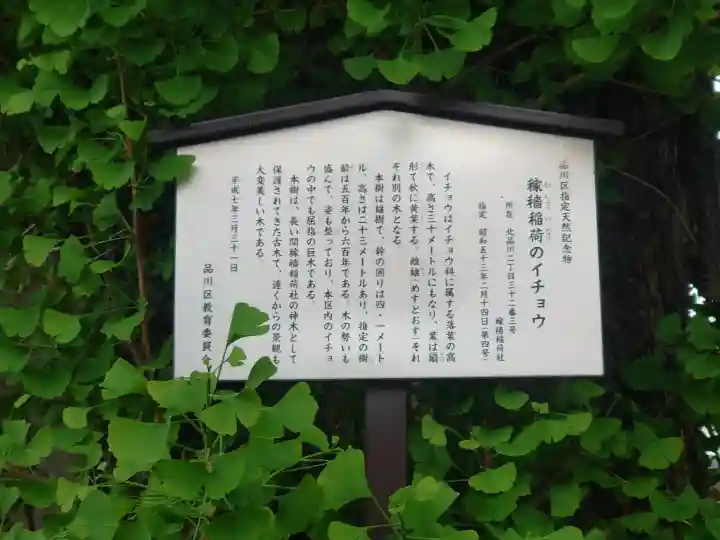 品川区指定天然記念物
稼穡稲荷のイチョウ
かしょくいなり
所在 北品川二丁目三十二番三号
稼穡稲荷社
指定 昭和五十三年二月十四日(第四号)
イチョウはイチョウ科に属する落葉の高
木で、高さ三十メートルにもなり、葉は扇
形で秋に黄葉する。雌雄(めすとおす)それ
ぞれ別の木となる
本樹は雄樹で、幹の囲りは四・一メート
ル、高さは二十三メートルあり、推定の樹
齢は五百年から六百年である。木の勢いも
盛んで、姿も整っており、本区内のイチョ
ウの中でも屈指の巨木である。
本樹は、長い間稼穡稲荷社の神木として
保護されてきた古木で、遠くからの景観も
大変美しい木である。
平成七年三月三十一日
品川区教育委員会